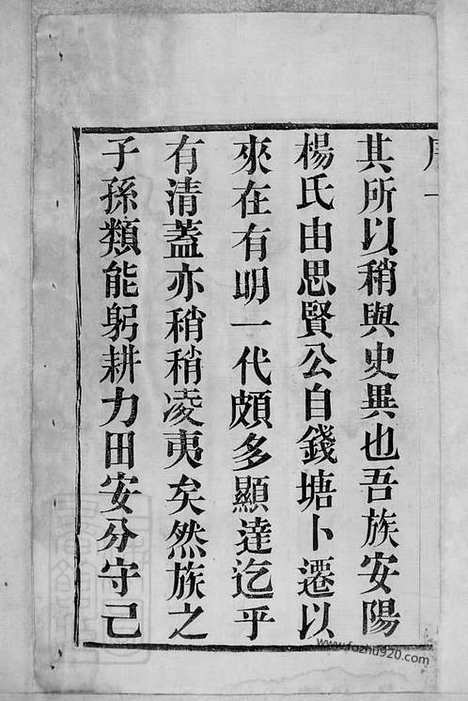 其所以稍與史異也吾族安陽
楊氏由思賢公自錢塘卜遷以
來在有明一代頗多顯達迄乎
有清蓋亦稍稍凌夷矣然族之
子孫類能躬耕力田安分守己
www.fozhu920.com